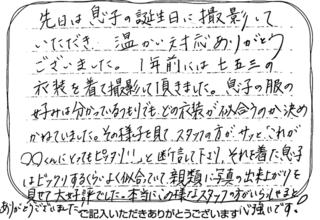 先日は息子の誕生日に撮影して
いただき、温かい対応ありがとう
ございました。1年前には七五三の
衣装を着て撮影して頂きました。息子の服の
好みは分かっているつもりでも、どの衣装が似合うのか決め
かねていました。その様子を見て、スタッフの方が、サッと「これが
〇〇くんにとってもピッタリ!!」と断言して下さり、それを着た息子
はビックリするくらいよく似合っていて、親類に写真の出来上がりを
見せて大好評でした。本当にこの様なスタッフの方がいらっしゃると
心強いです。
ありがとうございました
ご記入いただきありがとうございます